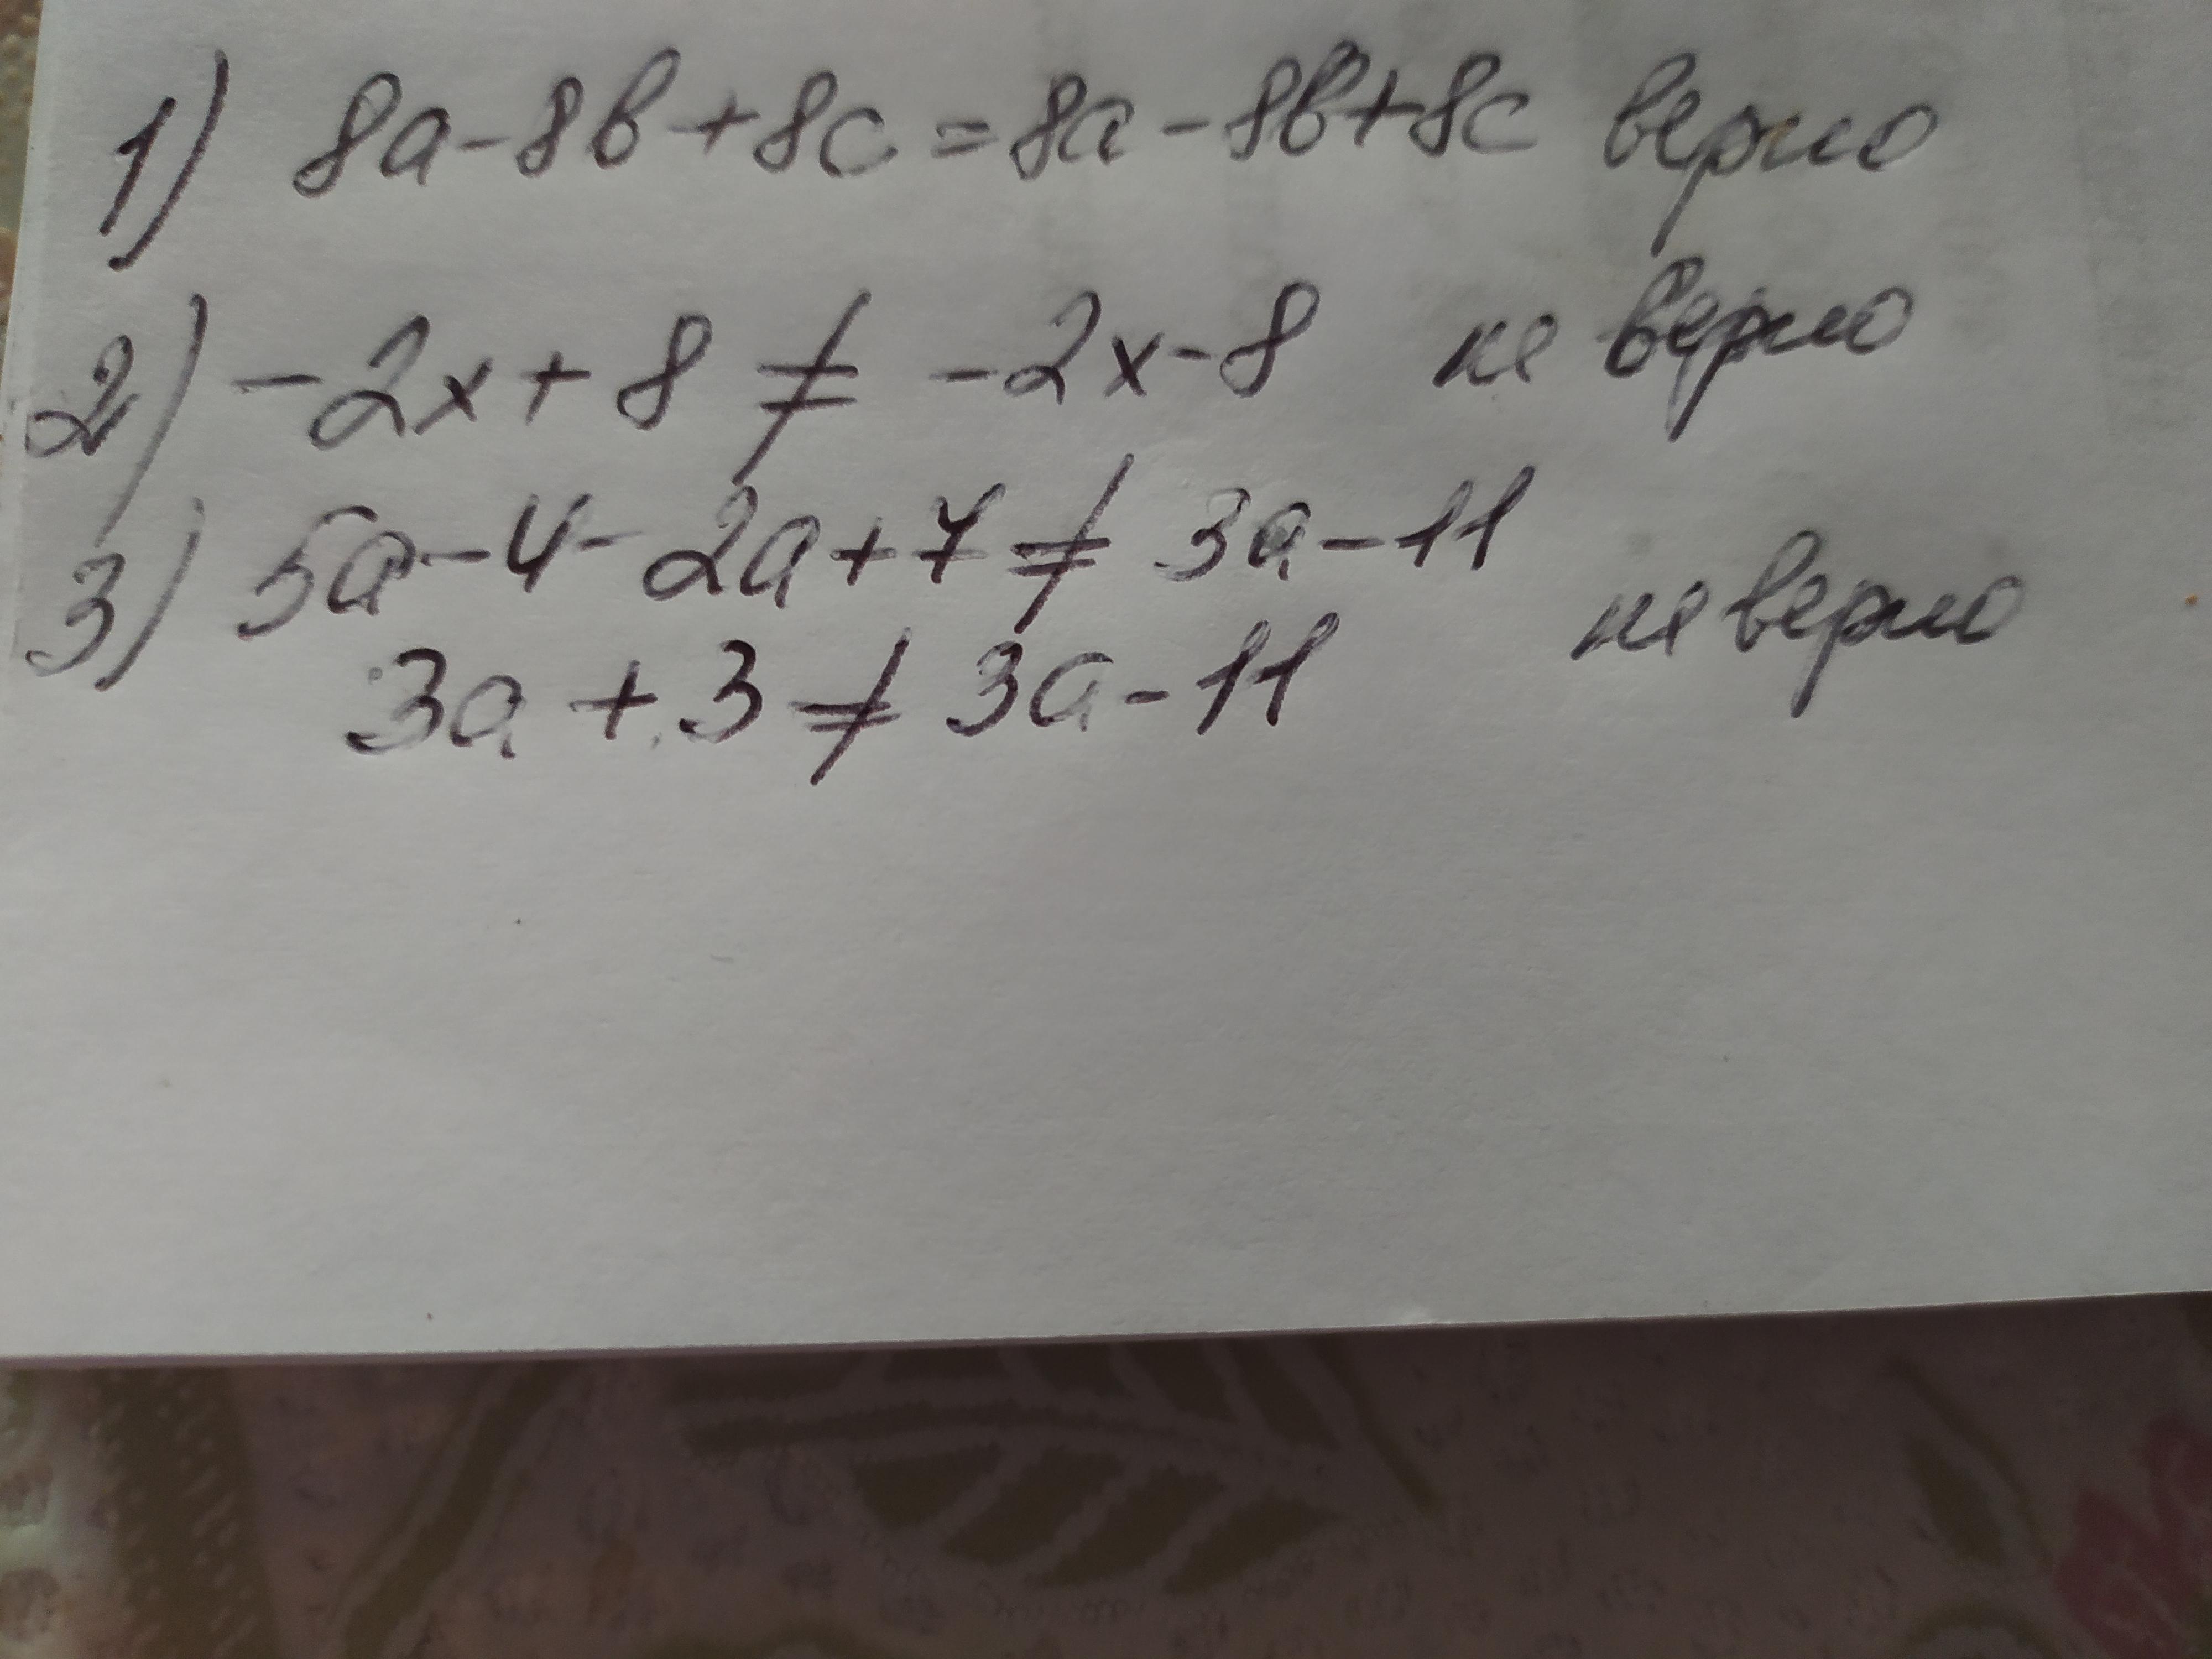 1) 8a-8в+8c=8a-8в+8c верно
2) -2x+8≠-2x-8 не верно
3) 5a-4-2a+7≠3a-11
3a+3≠3a-11 не верно